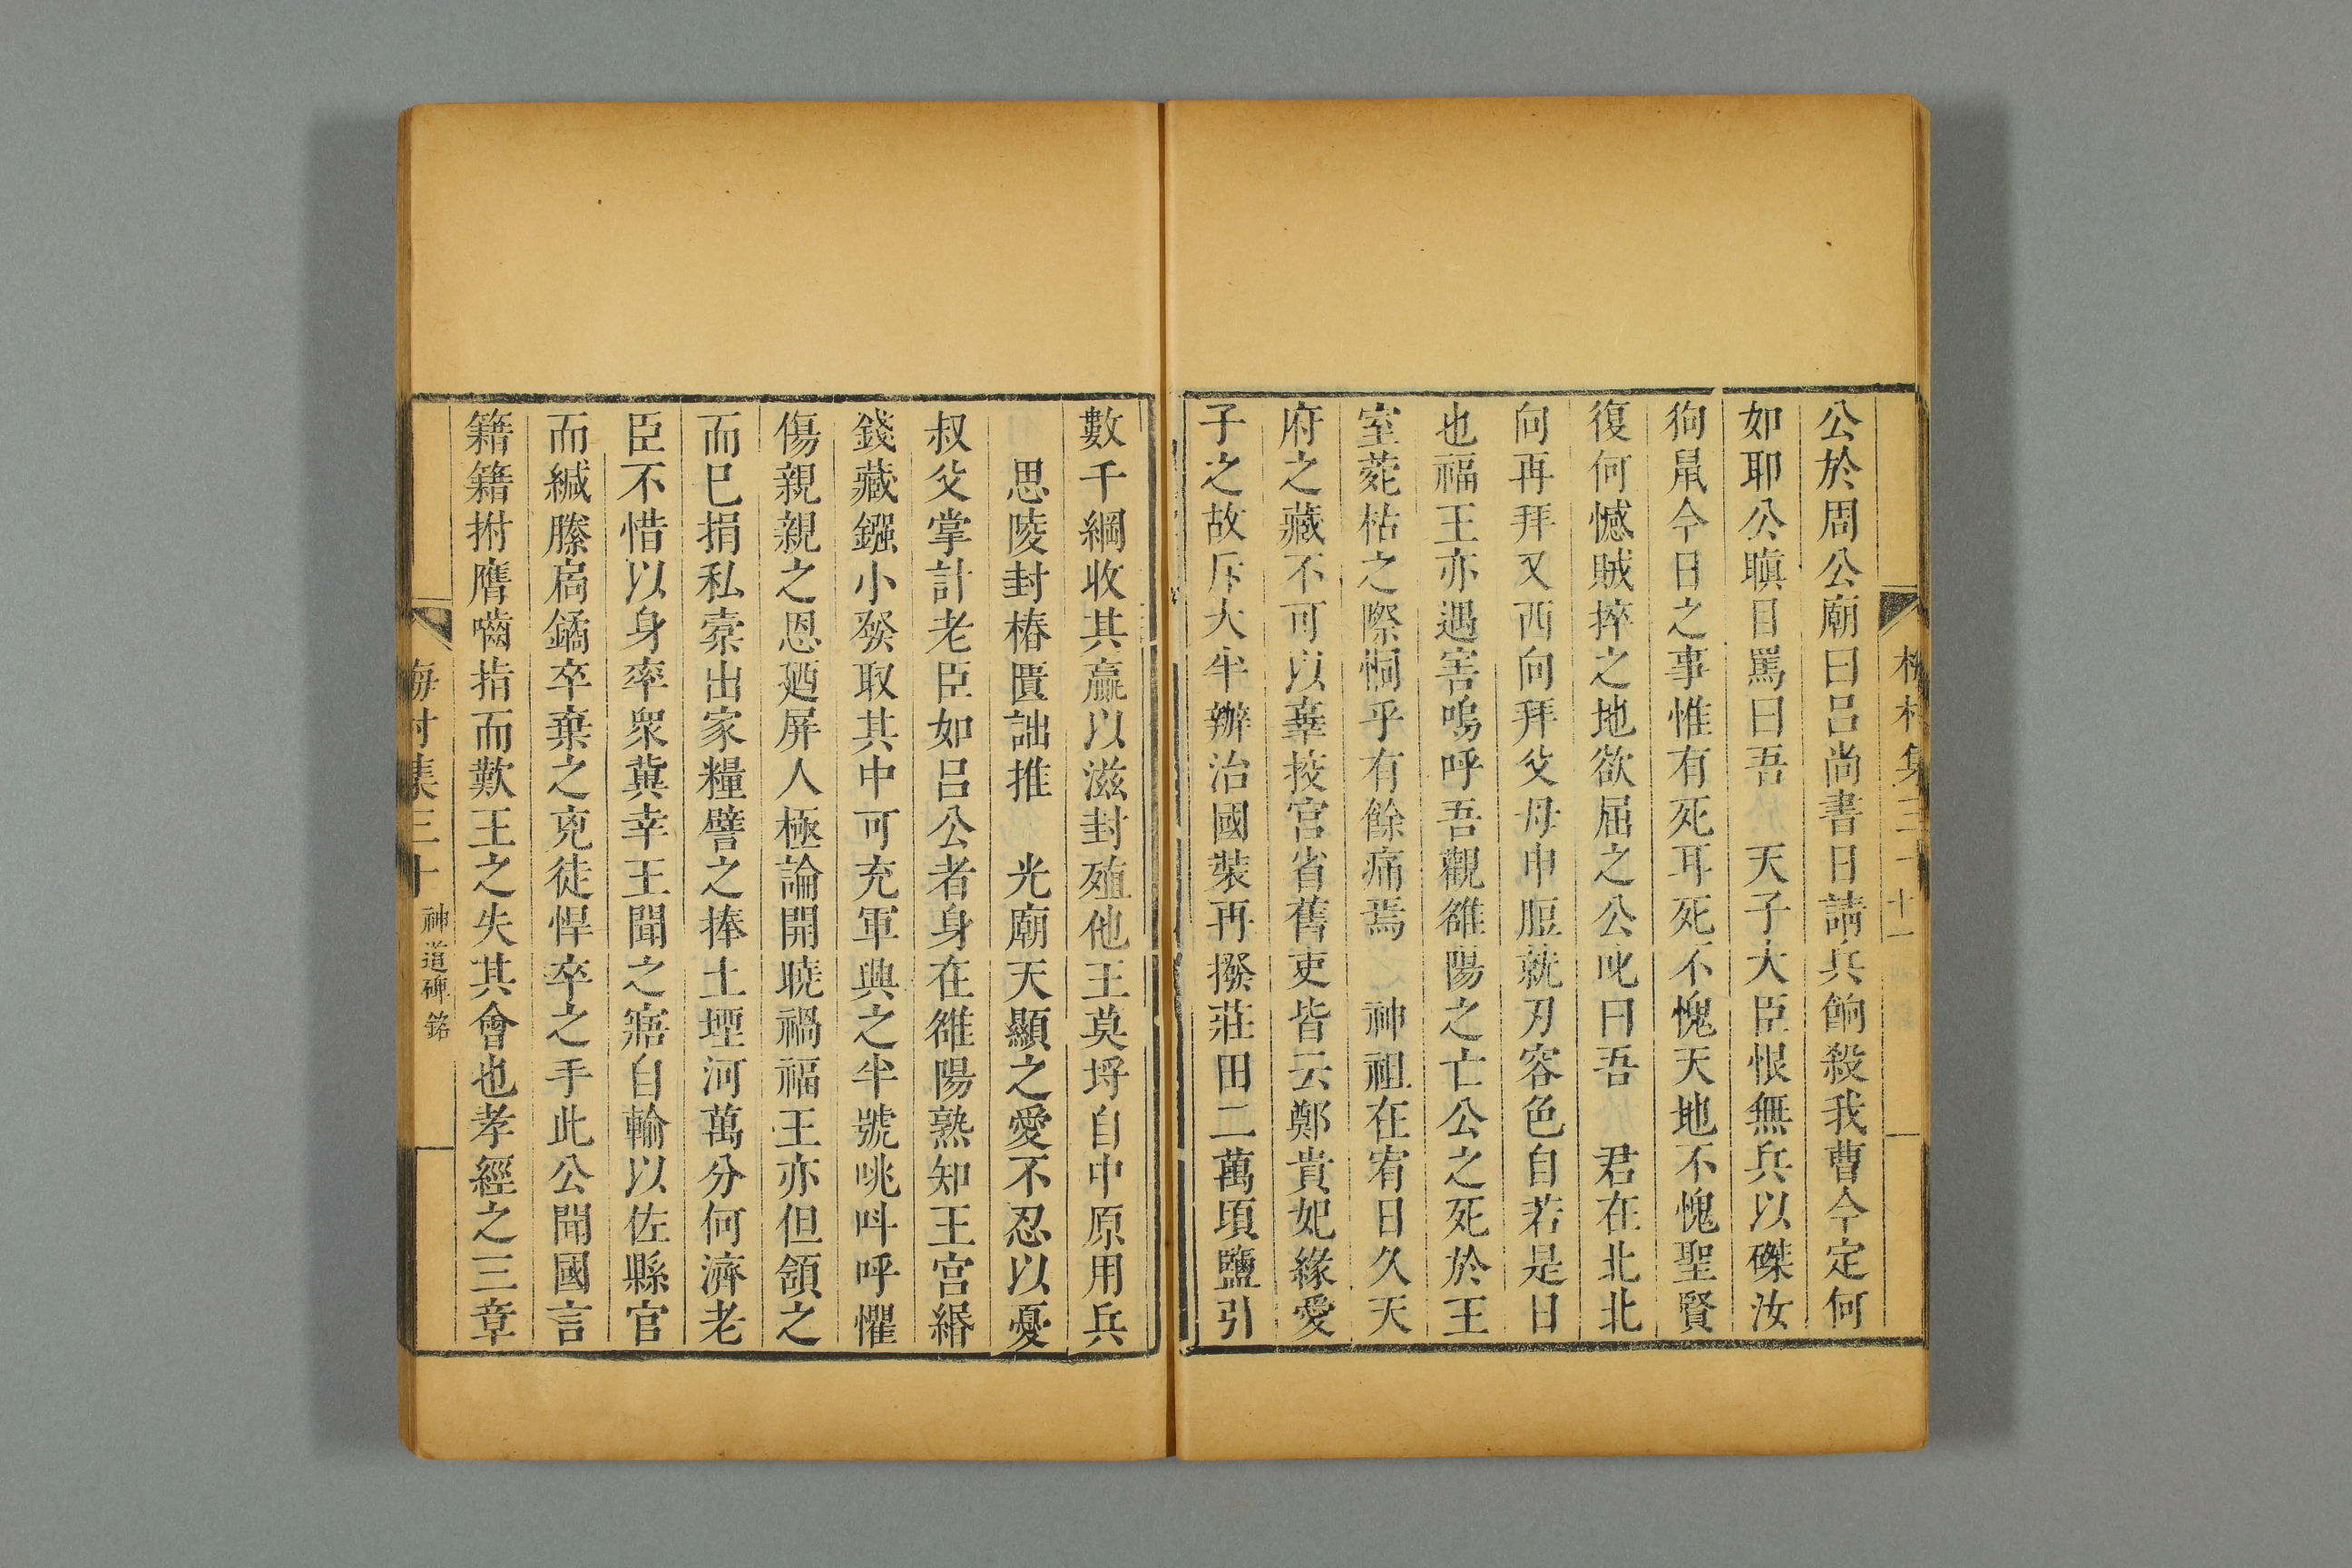 公於周公廟曰呂尚書日請兵餉殺我曹今定何
如耶公瞋目罵曰吾 天子大臣恨無兵以磔汝
狗鼠今日之事惟有死耳死不愧天地不愧聖賢
復何憾賊捽之地欲屈之公叱曰吾 君在北北
向再拜又西向拜父母申脰就刃容色自若是日
也福王亦遇害嗚呼吾觀雒陽之亡公之死於王
室菀枯之際恫乎有餘痛焉 神祖在宥日久天
府之藏不可以辜挍宮省舊吏皆云鄭貴妃緣愛
子之故斥大半辦治國裝再撥莊田二萬頃鹽引
數千綱收其贏以滋封殖他王莫埒自中原用兵
思陵封樁匱詘推 光廟天顯之愛不忍以憂
叔父掌計老臣如呂公者身在雒陽熟知王宮緡
錢藏鏹小發取其中可充軍興之半號咷呌呼懼
傷親親之恩廼屏人極論開曉禍福王亦但頷之
而巳捐私槖出家糧譬之捧土堙河萬分何濟老
臣不惜以身率衆冀幸王聞之寤自輸以佐縣官
而緘縢扃鐍卒棄之兇徒悍卒之手此公聞國言
籍籍拊膺嚙指而歎王之失其會也孝經之三章
梅村集三十 神道碑銘
十一